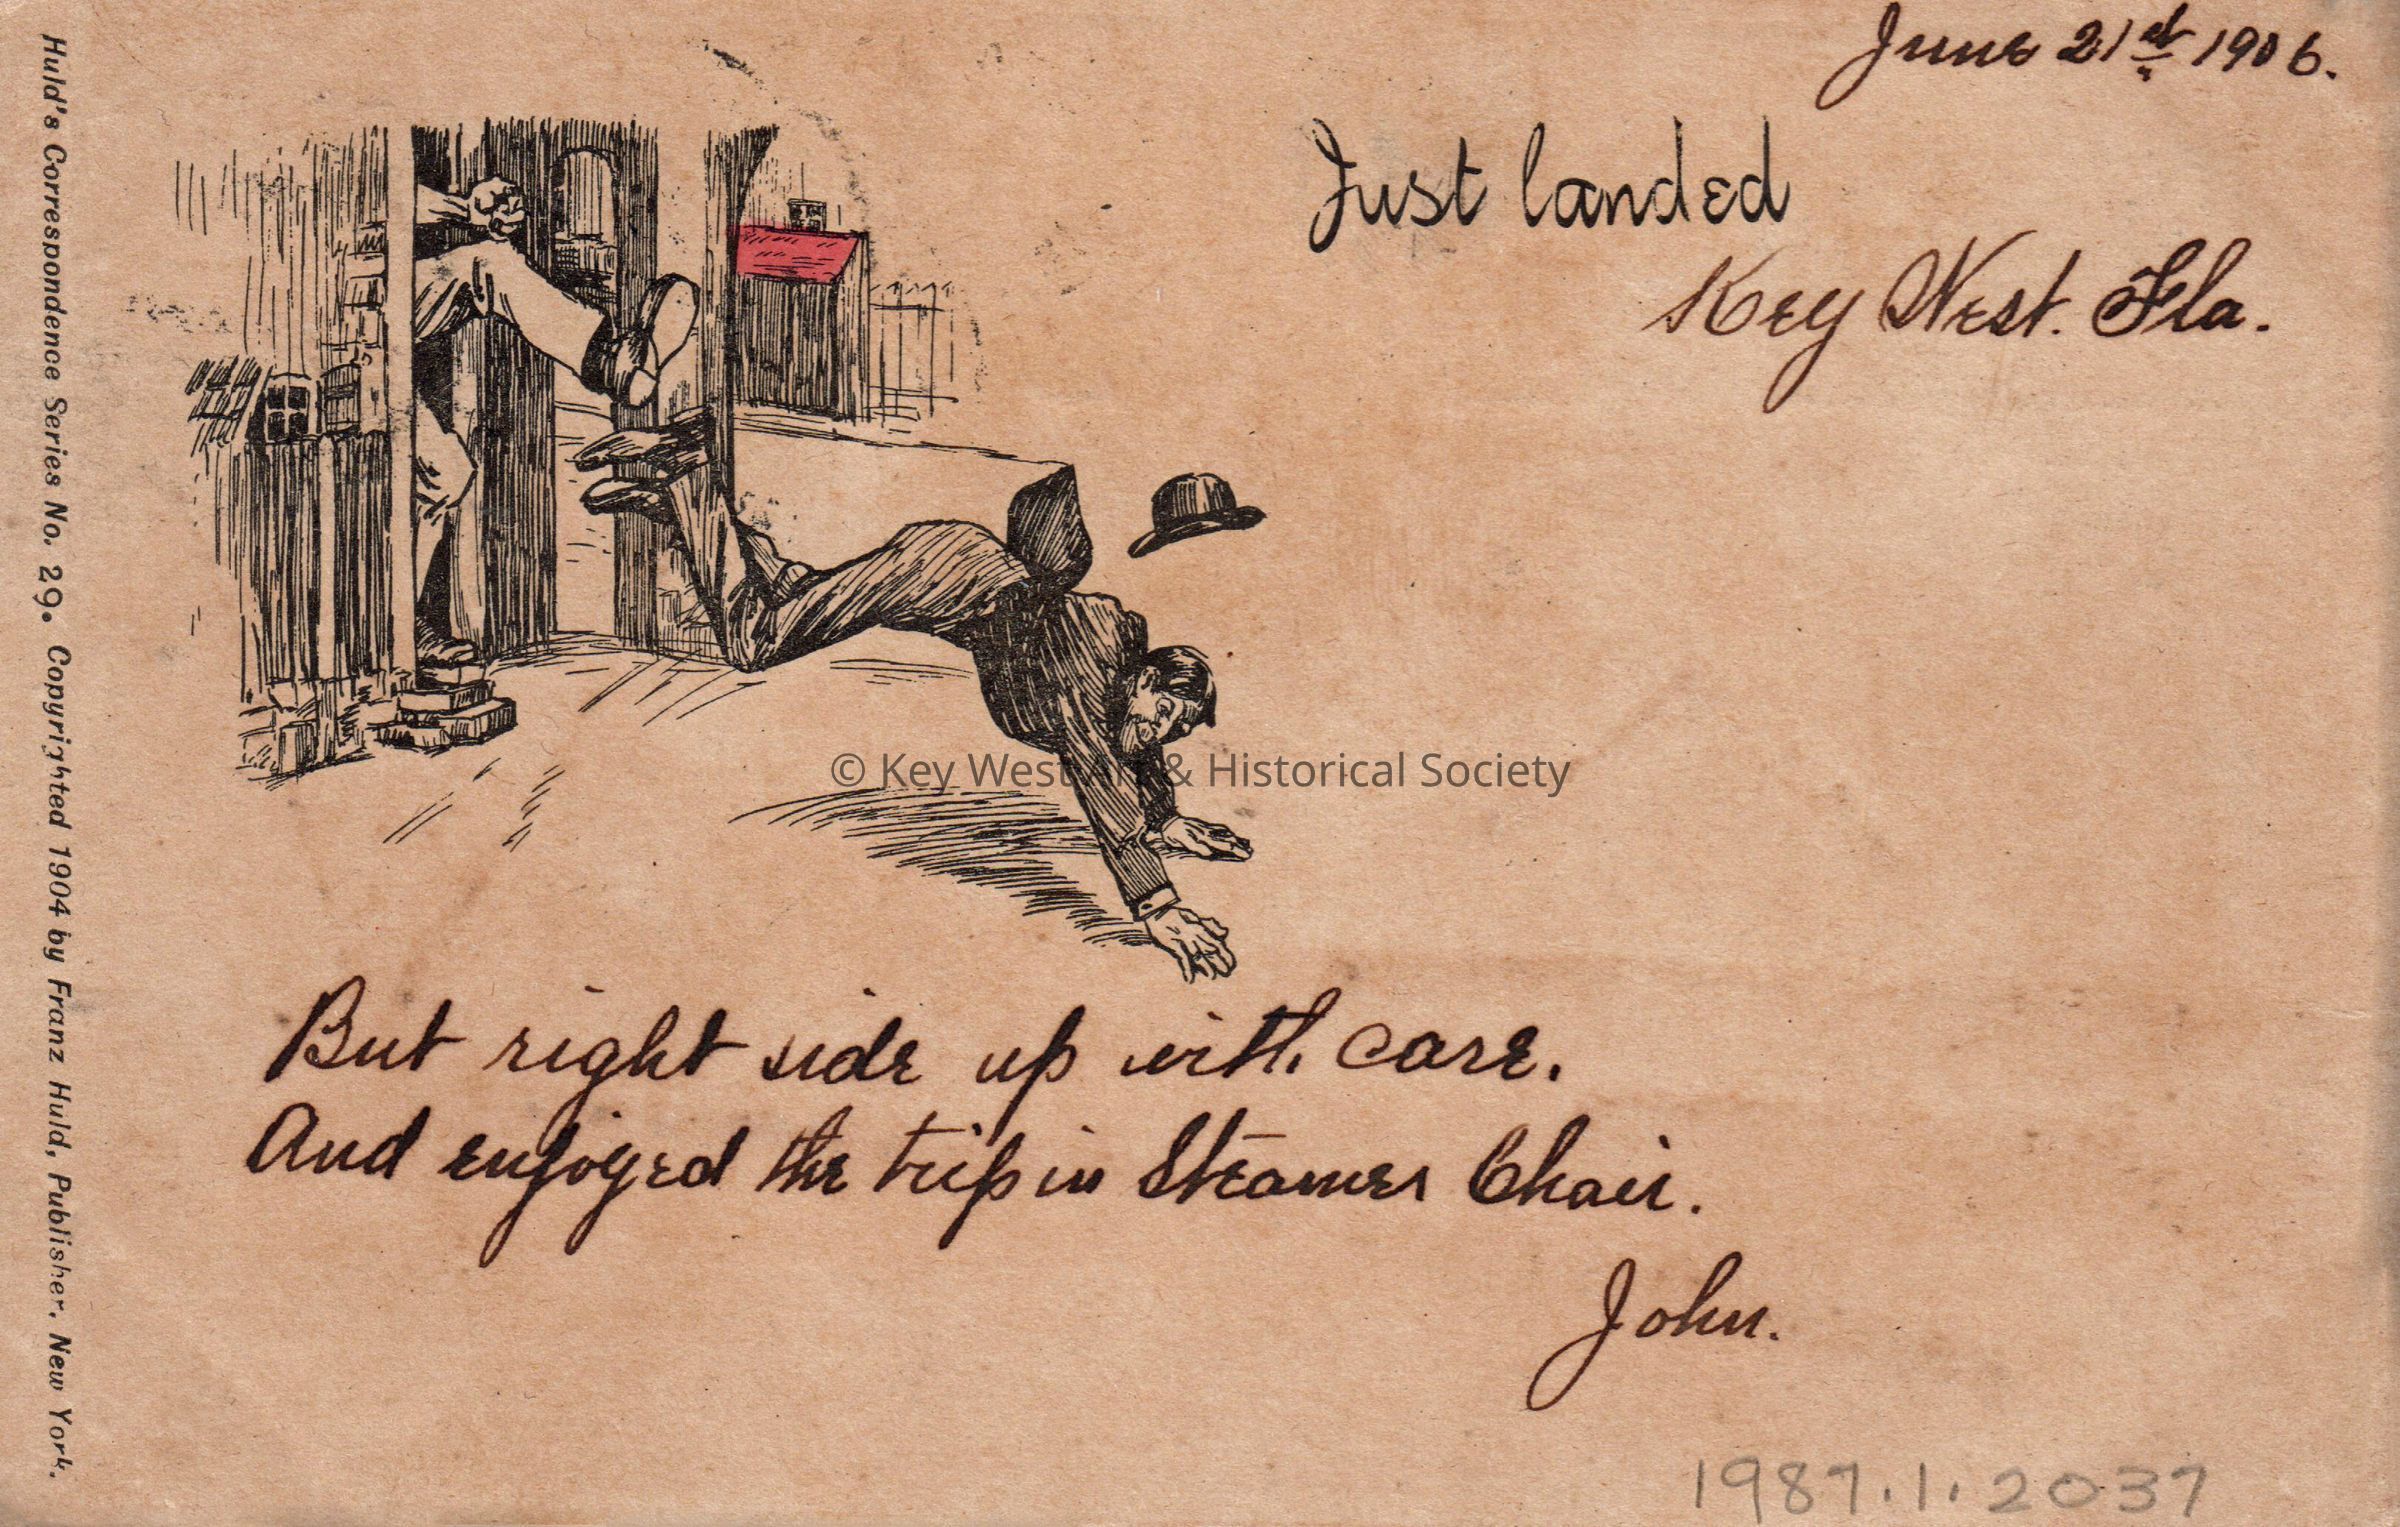 June 21st 1906.
Just landed
Key West. Fla.
© Key West Art & Historical Society
But right side up with care.
And enjoyed the trip in Steamer Chair.
John.
1987.1.2037
Huld's Correspondence Series No. 29. Copyrighted 1904 by Franz Huld, Publisher, New York.